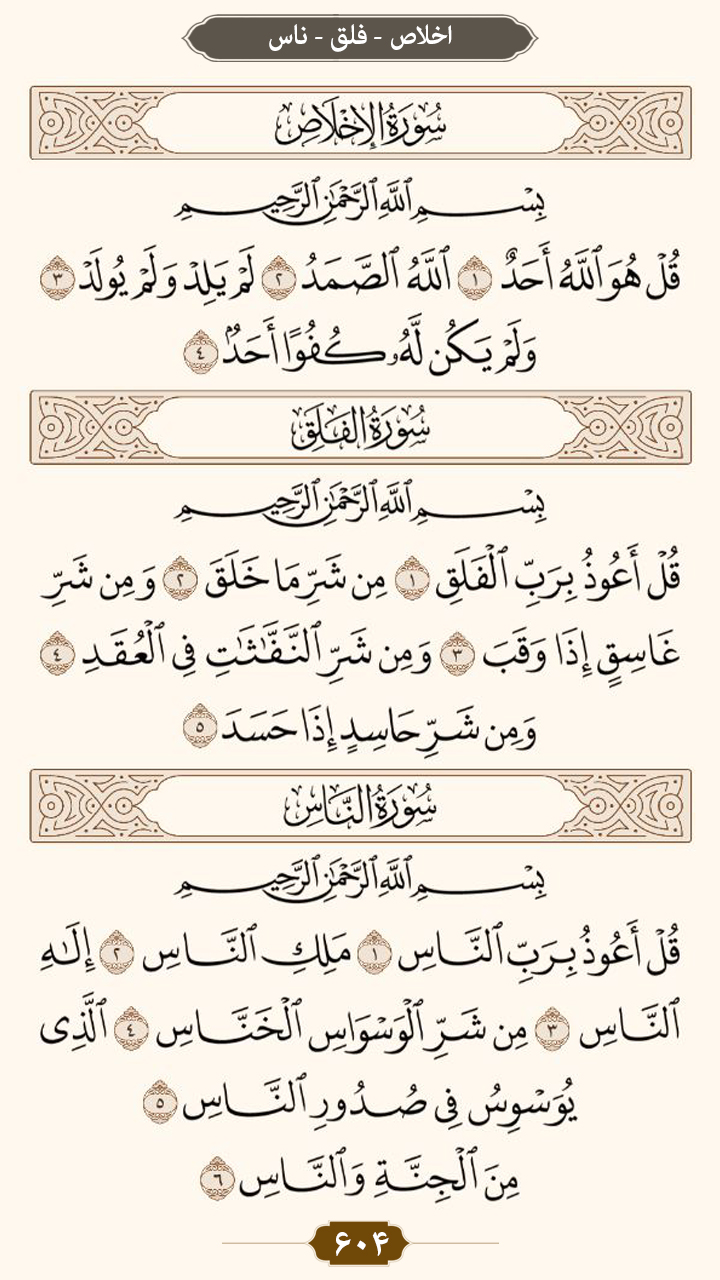 اخلاص - فلق - ناس
سُورَةُ الإِخْلَاصِ
بِسْمِ ٱللَّهِ ٱلرَّحْمَٰنِ ٱلرَّحِيمِ
قُلْ هُوَ ٱللَّهُ أَحَدٌ ١ ٱللَّهُ ٱلصَّمَدُ ٢ لَمْ يَلِدْ وَلَمْ يُولَدْ ٣
وَلَمْ يَكُن لَّهُۥ كُفُوًا أَحَدٌۢ ٤
سُورَةُ الفَلَقِ
بِسْمِ ٱللَّهِ ٱلرَّحْمَٰنِ ٱلرَّحِيمِ
قُلْ أَعُوذُ بِرَبِّ ٱلْفَلَقِ ١ مِن شَرِّ مَا خَلَقَ ٢ وَمِن شَرِّ
غَاسِقٍ إِذَا وَقَبَ ٣ وَمِن شَرِّ ٱلنَّفَّٰثَٰتِ فِى ٱلْعُقَدِ ٤
وَمِن شَرِّ حَاسِدٍ إِذَا حَسَدَ ٥
سُورَةُ النَّاسِ
بِسْمِ ٱللَّهِ ٱلرَّحْمَٰنِ ٱلرَّحِيمِ
قُلْ أَعُوذُ بِرَبِّ ٱلنَّاسِ ١ مَلِكِ ٱلنَّاسِ ٢ إِلَٰهِ
ٱلنَّاسِ ٣ مِن شَرِّ ٱلْوَسْوَاسِ ٱلْخَنَّاسِ ٤ ٱلَّذِى
يُوَسْوِسُ فِى صُدُورِ ٱلنَّاسِ ٥
مِنَ ٱلْجِنَّةِ وَٱلنَّاسِ ٦
۶۰۴